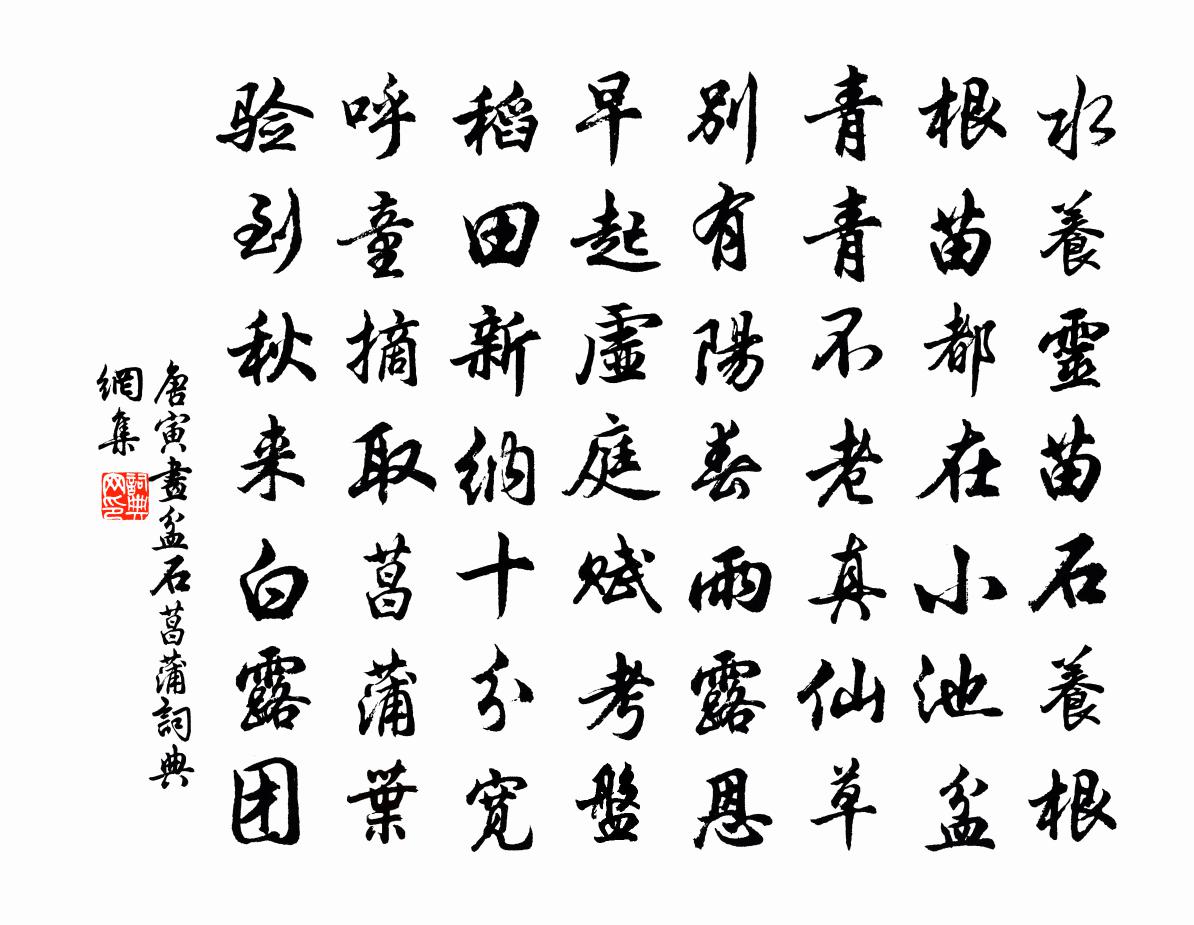 水養靈苗石養根
根苗都在小池盆
青青不老真仙草
別有陽春雨露恩
早起虛庭賦考盤
稻田新納十分寬
呼童摘取菖蒲葉
验到秋来白露团
唐寅畫盆石菖蒲詞典
網集
詞典
网印